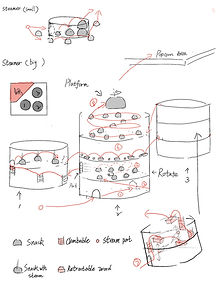 Steamer (small)
Popcorn box
Steamer (big)
Platform
Rotate
1
2
3
Snack
Climbable
Steam pot
Snack with
steam
Retractable wood